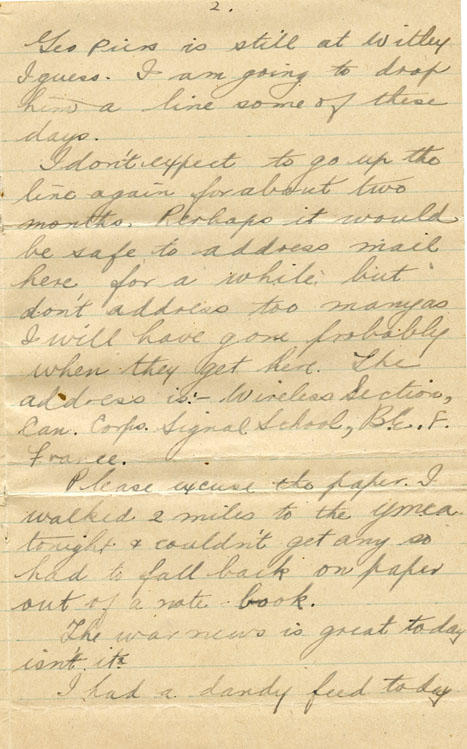 2.
Geo Piers is still at Witley
I guess. I am going to drop
him a line some of these
days.
I don't expect to go up the
line again for about two
months. Perhaps it would
be safe to address mail
here for a while, but
don't address too many as
I will have gone probably
when they get here. The
address is:- Wireless Section,
Can. Corps. Signal School, B.E.F.
France.
Please excuse the paper. I
walked 2 miles to the ymca
tonight & couldn't get any so
had to fall back on paper
out of a note book.
The war news is great today
isn't it?
I had a dandy feed today